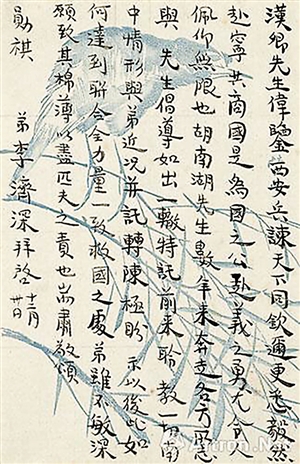 漢卿先生惇鑒西安兵諫天下同欽邇更悉毅然
赴寧共商國是為國之公赴義之勇尤令人
佩仰無限也胡南湖先生數年來奔走各方所志
與 先生倡導如出一轍特託前来聆教一切南
中情形與弟近況並託轉陳極盼 示以後此如
何達到聯合全力量一致救國之處弟雖不敏深
願致其棉薄以盡匹夫之責也耑肅敬頌
勛祺
弟李濟深拜啓
Artron.Net